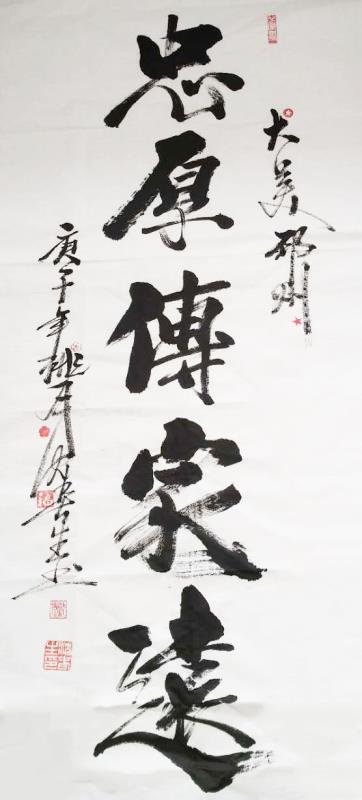 大美邳州
忠厚傳家遠
庚子年桃月